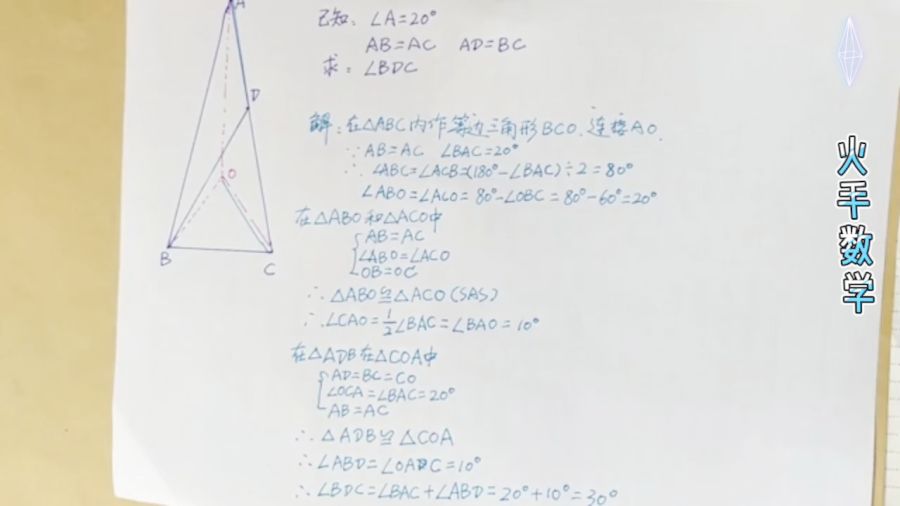 A
D
O
B
C
已知: ∠A=20°
AB=AC AD=BC
求: ∠BDC
解: 在△ABC内作等边三角形BCO, 连接AO.
∵ AB=AC ∠BAC=20°
∴ ∠ABC=∠ACB=(180°-∠BAC)÷2=80°
∠ABO=∠ACO=80°-∠OBC=80°-60°=20°
在△ABO和△ACO中
AB=AC
∠ABO=∠ACO
OB=OC
∴ △ABO≌△ACO(SAS)
∴ ∠CAO=1/2∠BAC=∠BAO=10°
在△ADB在△COA中
AD=BC=CO
∠OCA=∠BAC=20°
AB=AC
∴ △ADB≌△COA
∴ ∠ABD=∠OAC=10°
∴ ∠BDC=∠BAC+∠ABD=20°+10°=30°
火手数学